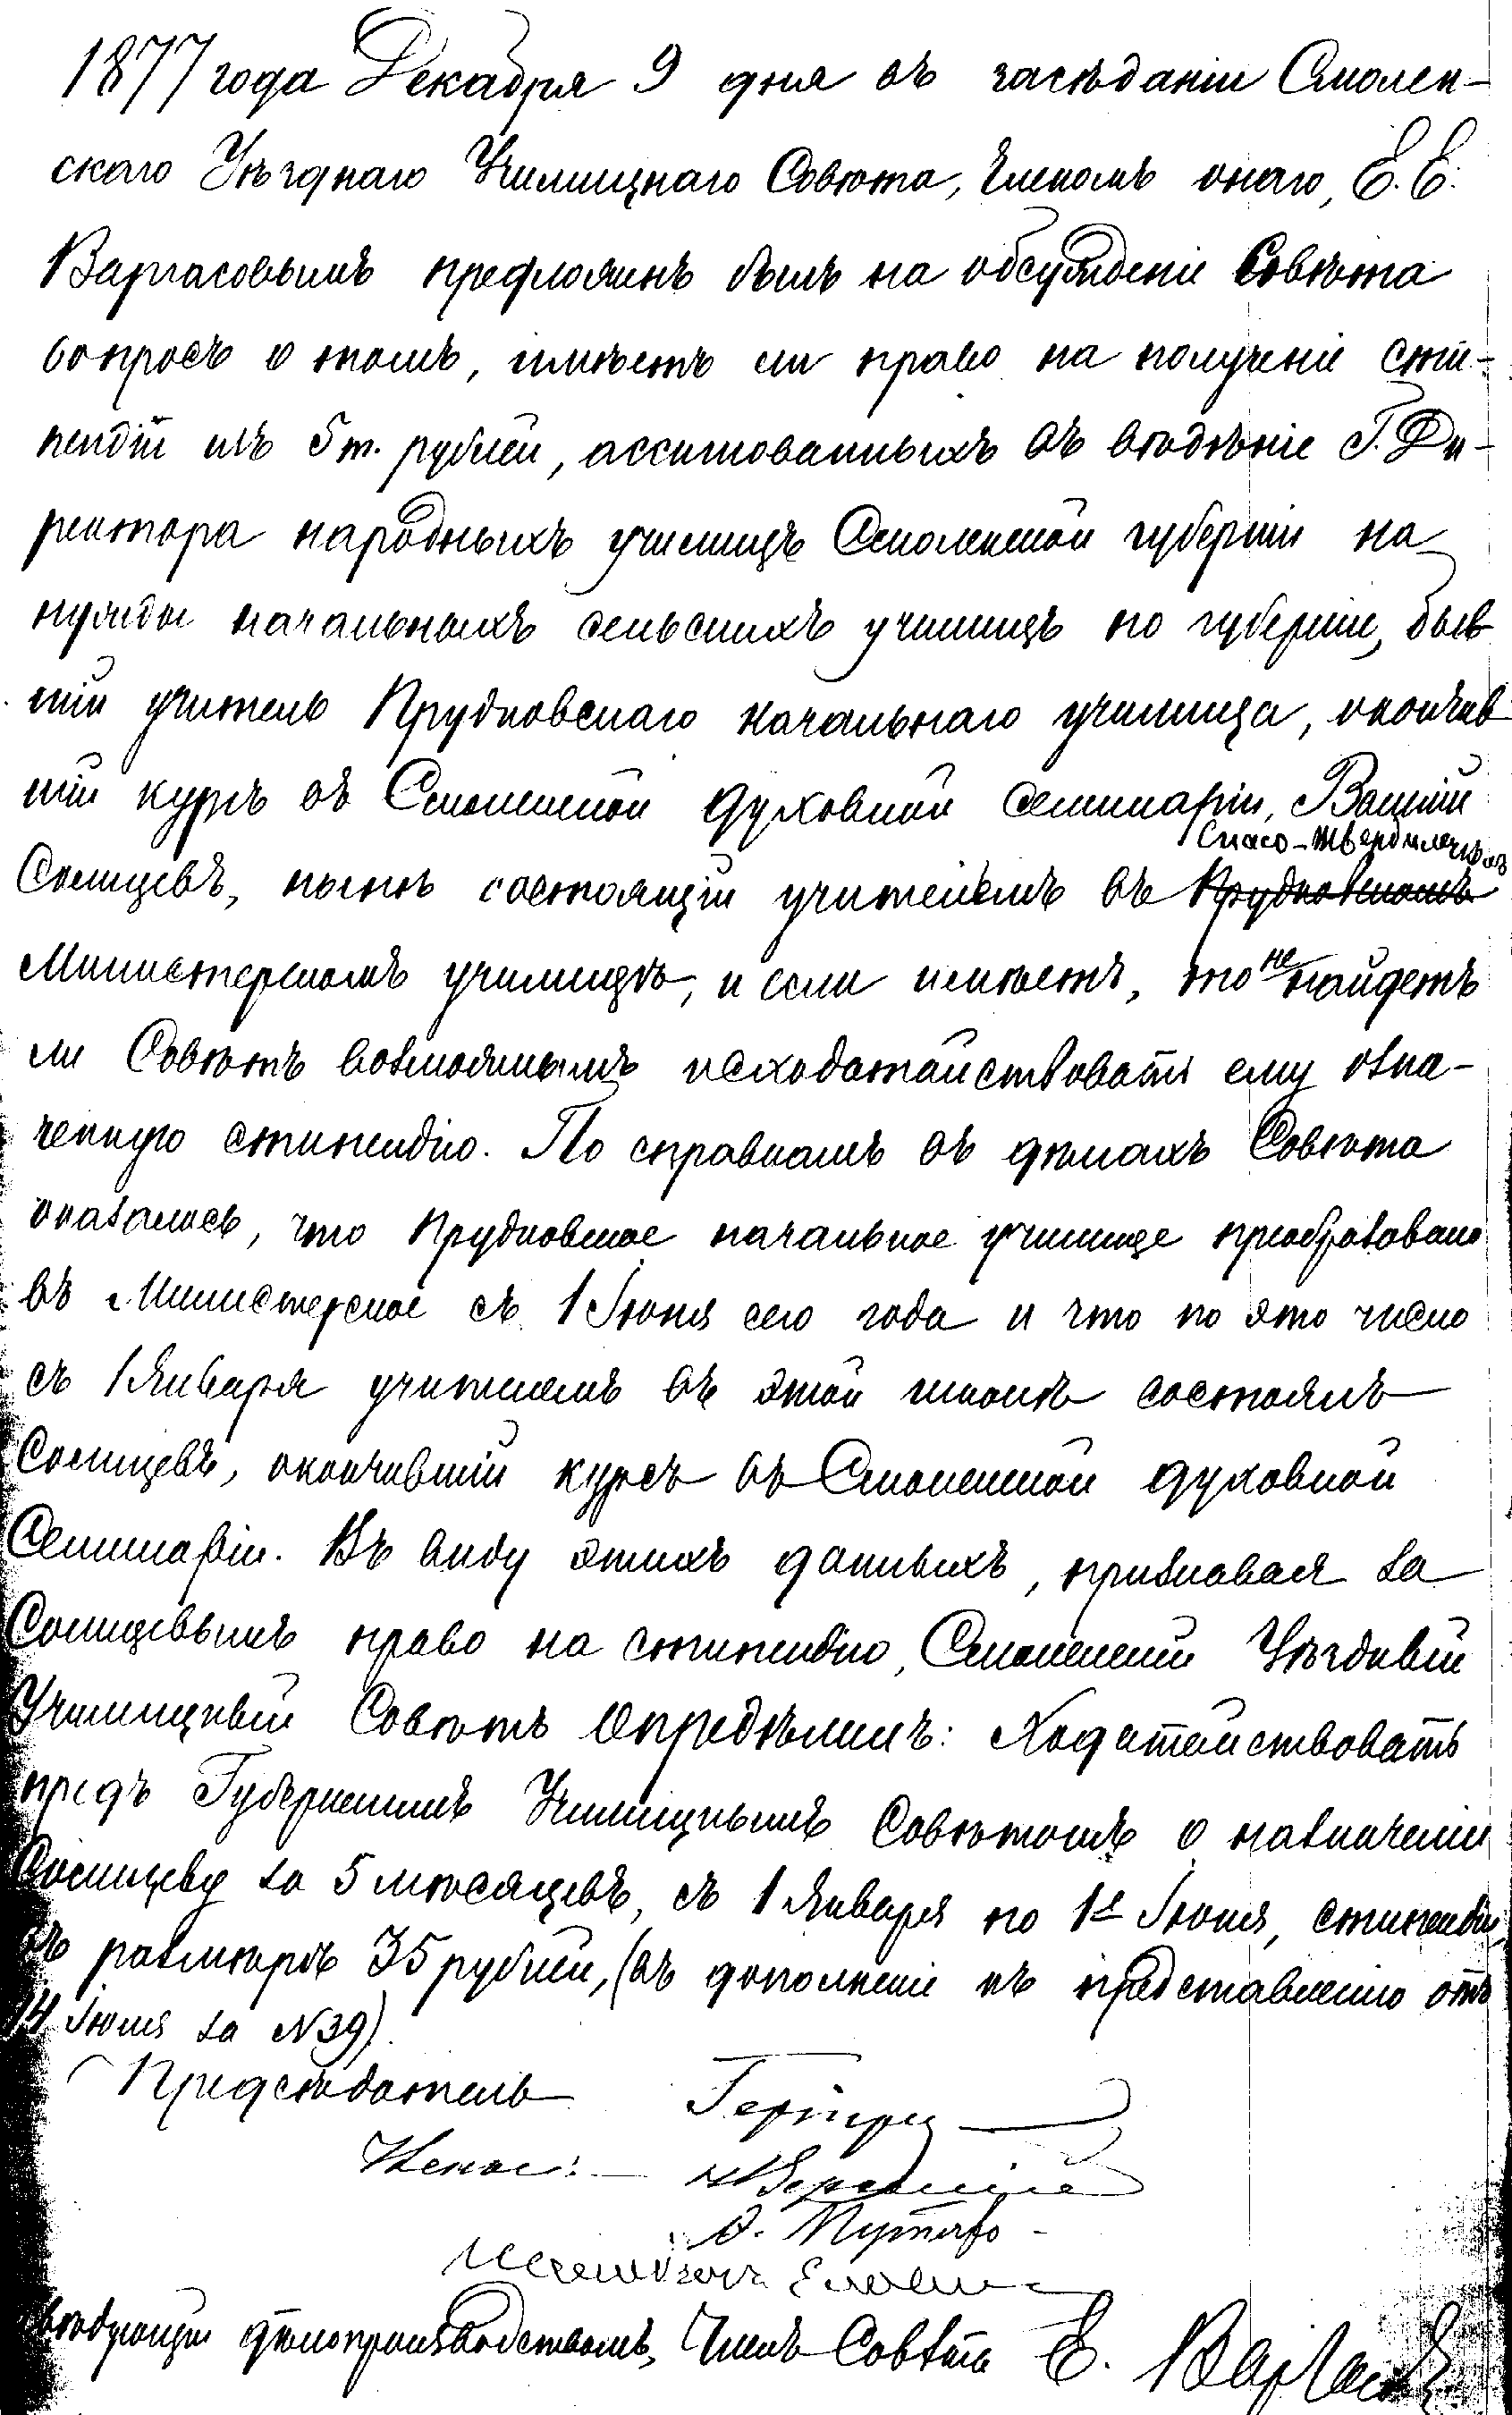 1877 года Декабря 9 дня въ засѣданіи Смолен-
скаго Уѣзднаго Училищнаго Совѣта, Членомъ онаго, Е. Е.
Варгасовымъ предложенъ былъ на обсужденіе Совѣта
вопросъ о томъ, имѣетъ ли право на полученіе сти-
пендіи изъ 5 т. рублей, ассигнованныхъ въ вѣдѣніе Г. Ди-
ректора народныхъ училищъ Смоленской губерніи на
нужды начальныхъ сельскихъ училищъ по губерніи, быв
шій учитель Прудковскаго начальнаго училища, окончив
шій курсъ въ Смоленской духовной семинаріи,
Спасо-Твердилическомъ
Солнцевъ, нынѣ состоящій учителемъ въ Прудковскомъ
Министерскомъ училищѣ, и если имѣетъ, то не найдетъ
ли Совѣтъ возможнымъ исходатайствовать ему озна-
ченную стипендію. По справкамъ въ дѣлахъ Совѣта
оказалось, что Прудковское начальное училище преобразовано
въ Министерское съ 1 Іюня сего года и что по это число
съ 1 Января учителемъ въ этой школѣ состоялъ
Солнцевъ, окончившій курсъ въ Смоленской духовной
Семинаріи. Въ виду этихъ данныхъ, признавая за
Солнцевымъ право на стипендію, Смоленскій Уѣздный
Училищный Совѣтъ Опредѣлилъ: Ходатайствовать
предъ Губернскимъ Училищнымъ Совѣтомъ о назначеніи
Солнцеву за 5 мѣсяцевъ, съ 1 Января по 1е Іюня, стипендіи
въ размѣрѣ 35 рублей, (въ дополненіе къ представленію отъ
14 Іюня за № 39).
Предсѣдатель
Члены:
А. Путята
Завѣдующій дѣлопроизводствомъ, Членъ Совѣта Е. Варгасовъ